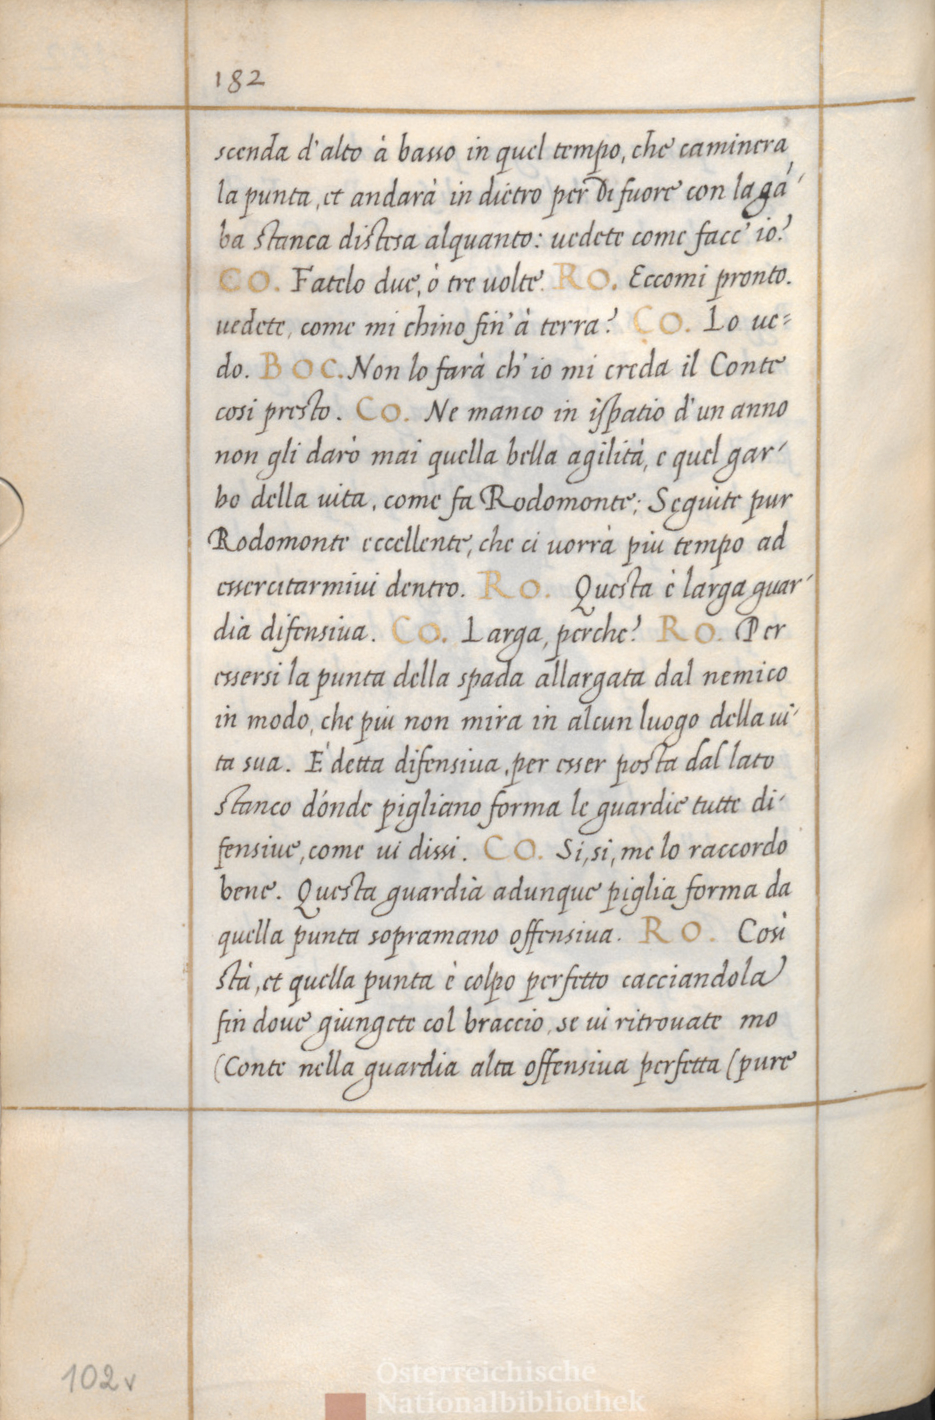 182
scenda d'alto à basso in quel tempo, che caminerà
la punta, et andarà in dietro per di fuore con la gā-
ba stanca distesa alquanto: uedete come facc' io?
CO. Fatelo due, ò tre uolte. RO. Eccomi pronto.
uedete, come mi chino fin' à terra? CO. Lo ue-
do. BOC. Non lo farà ch' io mi creda il Conte
cosi presto. CO. Ne manco in ispatio d' un anno
non gli darò mai quella bella agilità, e quel gar-
bo della uita, come fa Rodomonte; Seguite pur
Rodomonte eccellente, che ci uorrà piu tempo ad
essercitarmiui dentro. RO. Questa è larga guar-
dia difensiua. CO. Larga, perche? RO. Per
essersi la punta della spada allargata dal nemico
in modo, che piu non mira in alcun luogo della ui-
ta sua. E' detta difensiua, per esser posta dal lato
stanco dónde pigliano forma le guardie tutte di-
fensiue, come ui dissi. CO. Si, si, me lo raccordo
bene. Questa guardia adunque piglia forma da
quella punta sopramano offensiua. RO. Così
stà, et quella punta è colpo perfetto cacciandola
fin doue giungete col braccio, se ui ritrouate mo
(Conte nella guardia alta offensiua perfetta (pure
102v
Österreichische
Nationalbibliothek